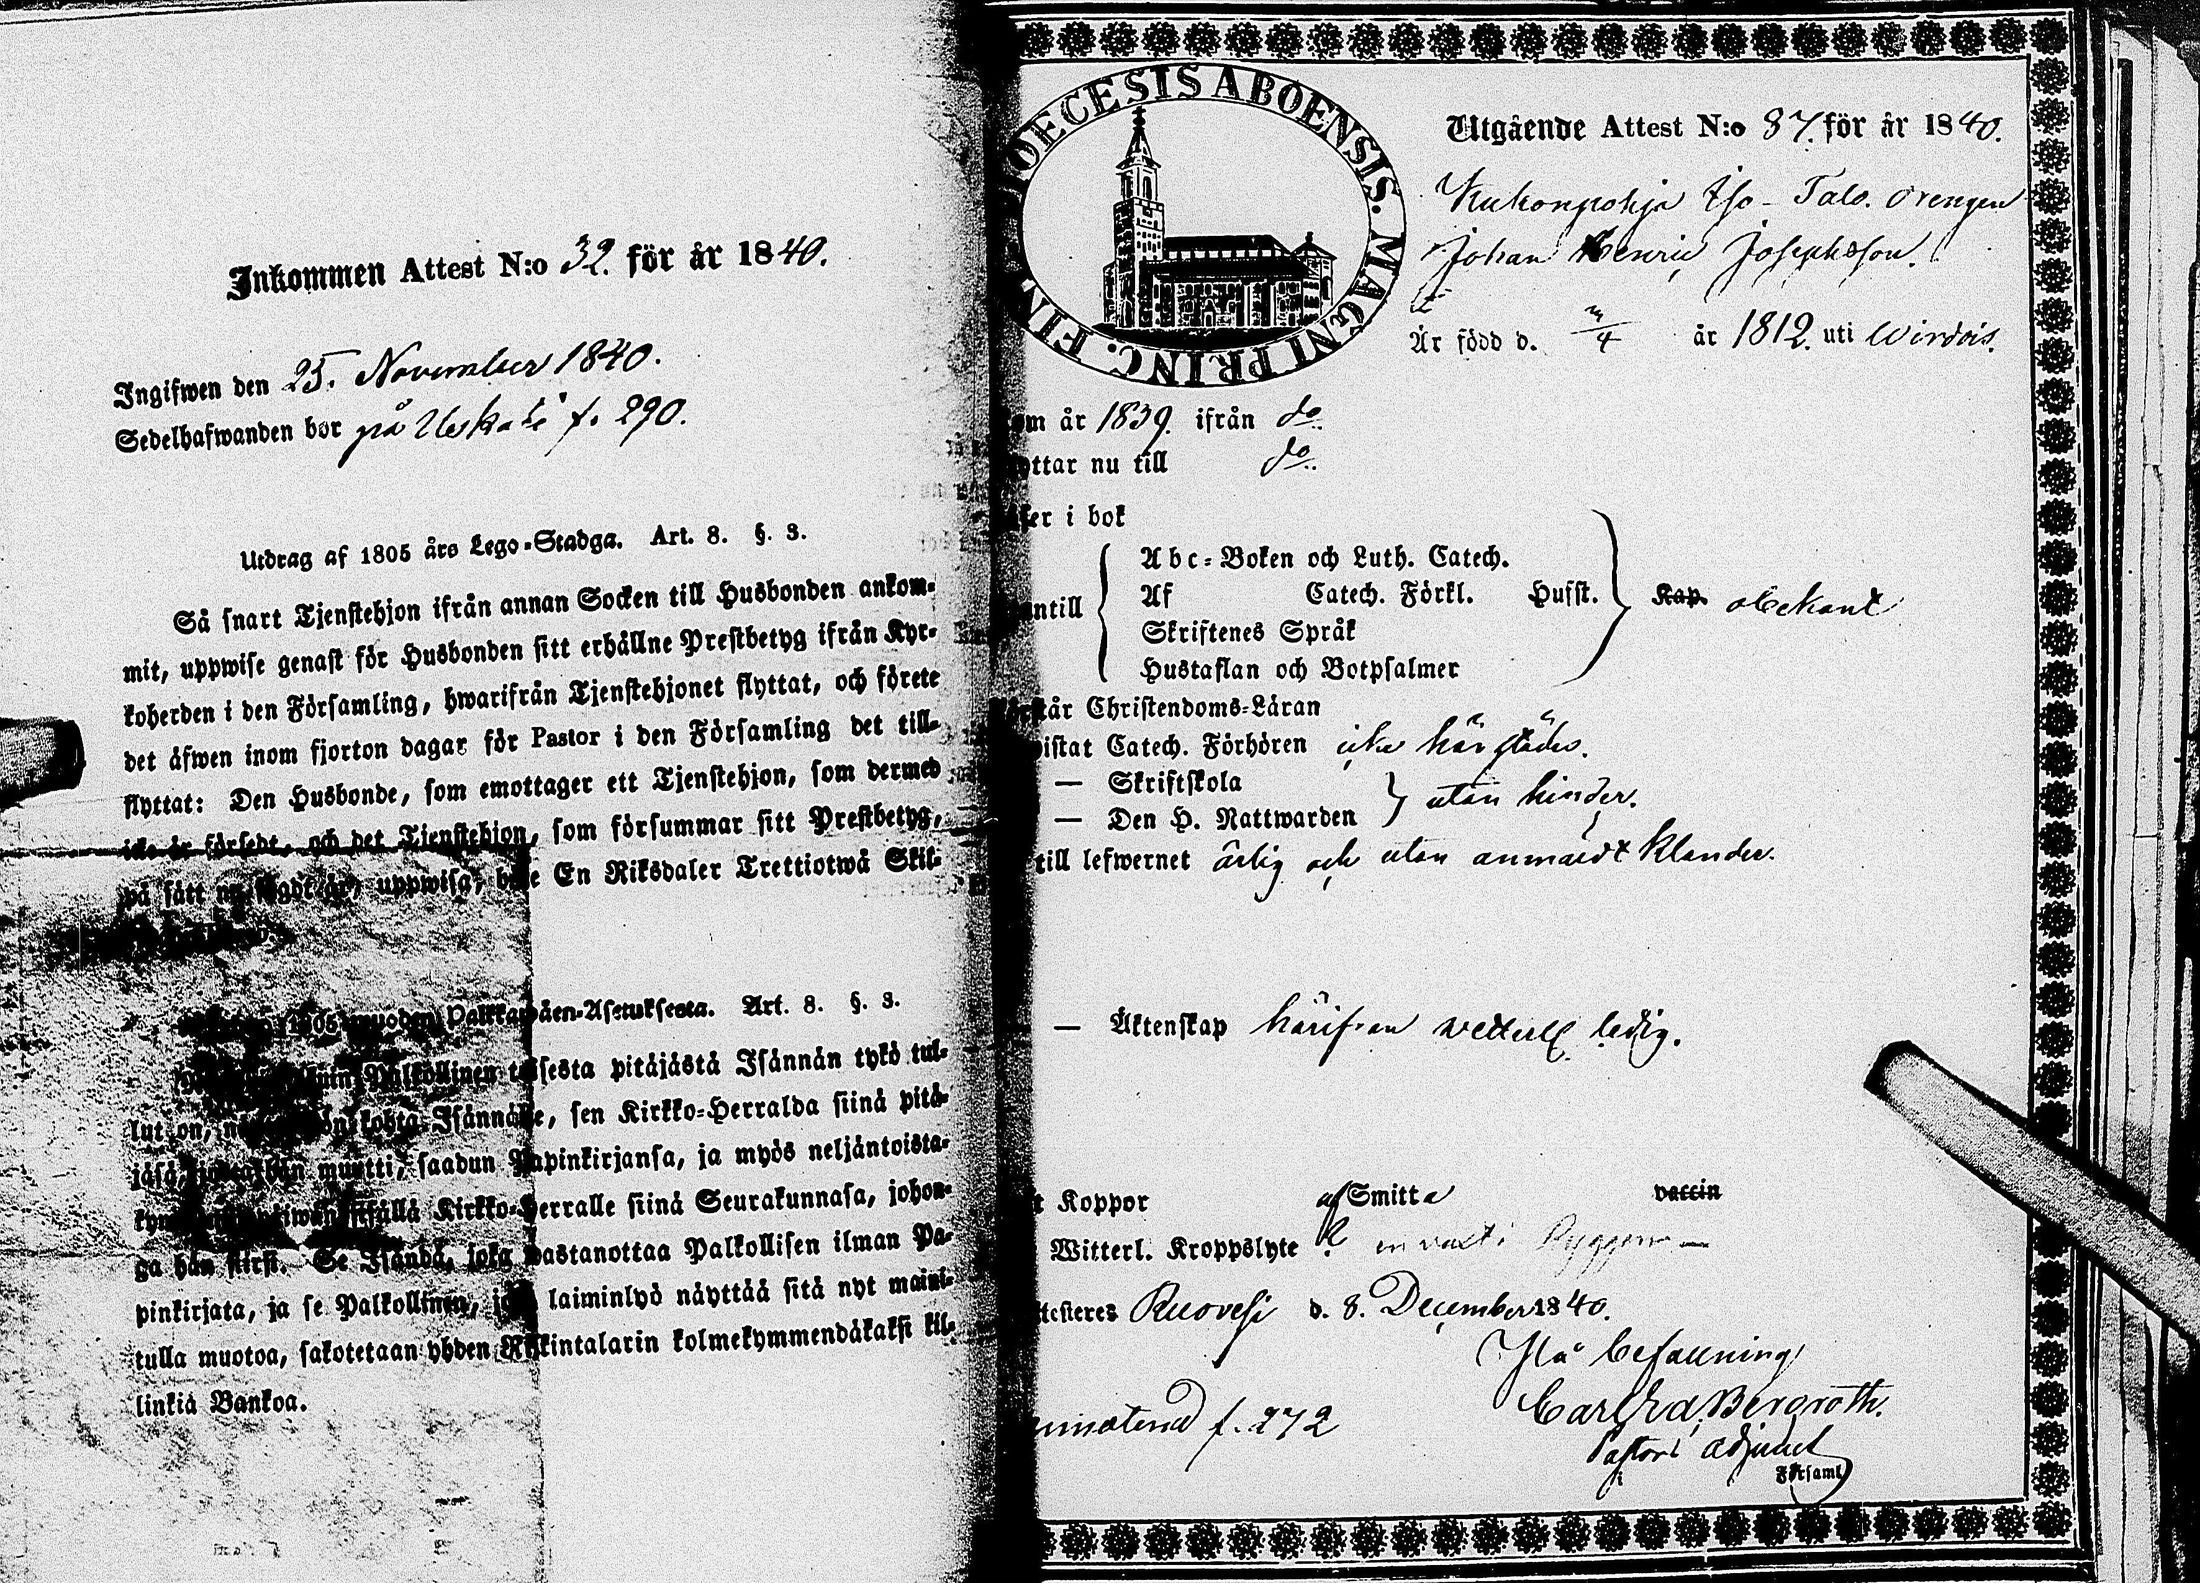 Inkommen Attest N:o 32. för år 1840.
Ingifwen den 25. November 1840.
Sedelhafwanden bor på f. 290.
Utdrag af 1805 års Lego-Stadga. Art. 8. §. 3.
Så snart Tjenstehjon ifrån annan Socken till Husbonden ankom-
mit, uppwise genast för Husbonden sitt erhållne Prestbetyg ifrån Kyr-
koherden i den Församling, hwarifrån Tjenstehjonet flyttat, och förete
det äfwen inom fjorton dagar för Pastor i den Församling det till-
flyttat: Den Husbonde, som emottager ett Tjenstehjon, som dermed
icke är försedt, och det Tjenstehjon, som försummar sitt Prestbetyg,
på sätt uppwisa, En Riksdaler Trettiotwå Skil-
1805 wuoden Palkkawäen-Asetuksesta. Art. 8. §. 3.
Palkollinen toisesta pitäjästä Isännän tykö tul-
lut on, kohta Isännälle, sen Kirkko-Herralda siinä pitä-
jäsä, muutti, saadun Papinkirjansa, ja myös neljäntoista-
sisällä Kirkko-Herralle siinä Seurakunnasa, johon-
ga hän siirsi. Se Isändä, joka wastanottaa Palkollisen ilman Pa-
pinkirjata, ja se Palkollinen, joka laiminlyö näyttää sitä nyt maini-
tulla muotoa, sakotetaan yhden Riikintalarin kolmekymmendäkaksi kil-
linkiä Bankoa.
DIOECESIS ABOENSIS. MAGNI PRINC. FIN.
Utgående Attest N:o 87. för år 1840.
Kukonpohja Iso-Talo. drengen
Johan Henric Josephsson.
Är född d. år 1812. uti Wirdois.
om år 1839. ifrån do.
ttar nu till do.
ser i bok
Abc-Boken och Luth. Catech.
Af Catech. Förkl. Husst. Kap. obekant
antill
Skriftenes Språk
Hustaflan och Botpsalmer
står Christendoms-Läran
istat Catech. Förhören icke härstädes.
— Skriftskola
— Den H. Nattwarden utan hinder.
till lefwernet ärlig och utan anmärdt klander.
— Äktenskap härifrån wetterl. ledig.
t Koppor af Smitta vaccin
Witterl. Kroppslyte en växt i Ryggen —
ttesteres Ruovesi d. 8. December 1840.
På befallning
Carl Ed. Bergroth.
Pastors adjunct
Församl
f. 272